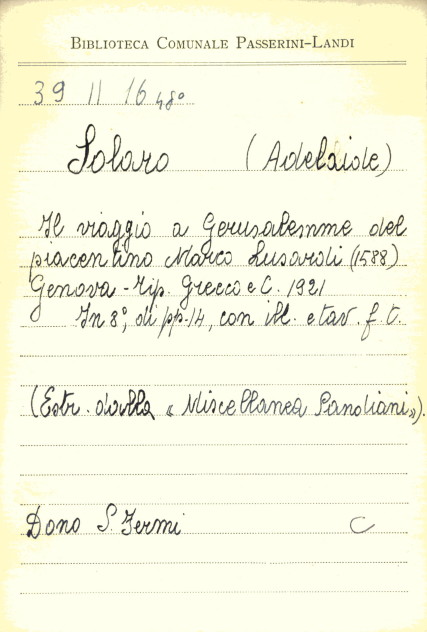 BIBLIOTECA COMUNALE PASSERINI-LANDI
39 II 16 48°
Solaro (Adelaide)
Il viaggio a Gerusalemme del
piacentino Marco Lusardi (1588)
Genova - Tip. Grecco e C. 1921
In 8°, di pp. 14, con ill. e tav. f. t.
(Estr. dalla « Miscellanea Pandiani»).
Dono S. Fermi C